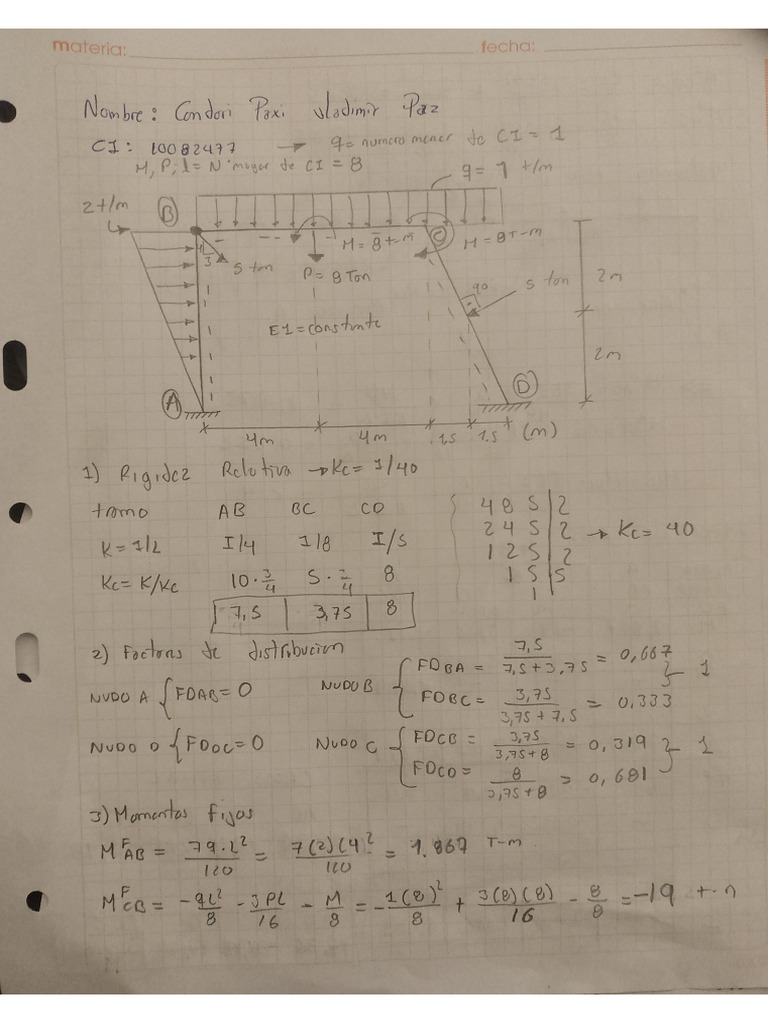 materia: fecha:
Nombre: Condori Paxi Vladimir Paz
CI: 10082477 → q = numero menor de CI = 1
M, P, l = N° mayor de CI = 8
q = 1 t/m
2 t/m
B
M = 8 t-m
C
M = 8 T-m
4
3
5 ton
P = 8 Ton
90
5 ton
2m
EI = constante
2m
A
D
4m 4m 1,5 1.5 (m)
1) Rigidez Relativa → Kc = 1/40
tramo AB BC CD
K = I/L I/4 I/8 I/5
Kc = K/Kc 10·3/4 5·3/4 8
7,5 3,75 8
4 8 5 | 2
2 4 5 | 2 → Kc = 40
1 2 5 | 2
1 5 | 5
1
2) Factores de distribucion
NUDO A { FDAB = 0 NUDO B { FDBA = 7,5 / 7,5+3,75 = 0,667 } 1
FDBC = 3,75 / 3,75+7,5 = 0,333
NUDO D { FDDC = 0 NUDO C { FDCB = 3,75 / 3,75+8 = 0,319 } 1
FDCD = 8 / 3,75+8 = 0,681
3) Momentos fijos
M^F AB = 7q·L² / 120 = 7(2)(4)² / 120 = 1.867 T-m
M^F CB = -qL²/8 - 3PL/16 - M/8 = -1(8)²/8 + 3(8)(8)/16 - 8/8 = -19 t-m